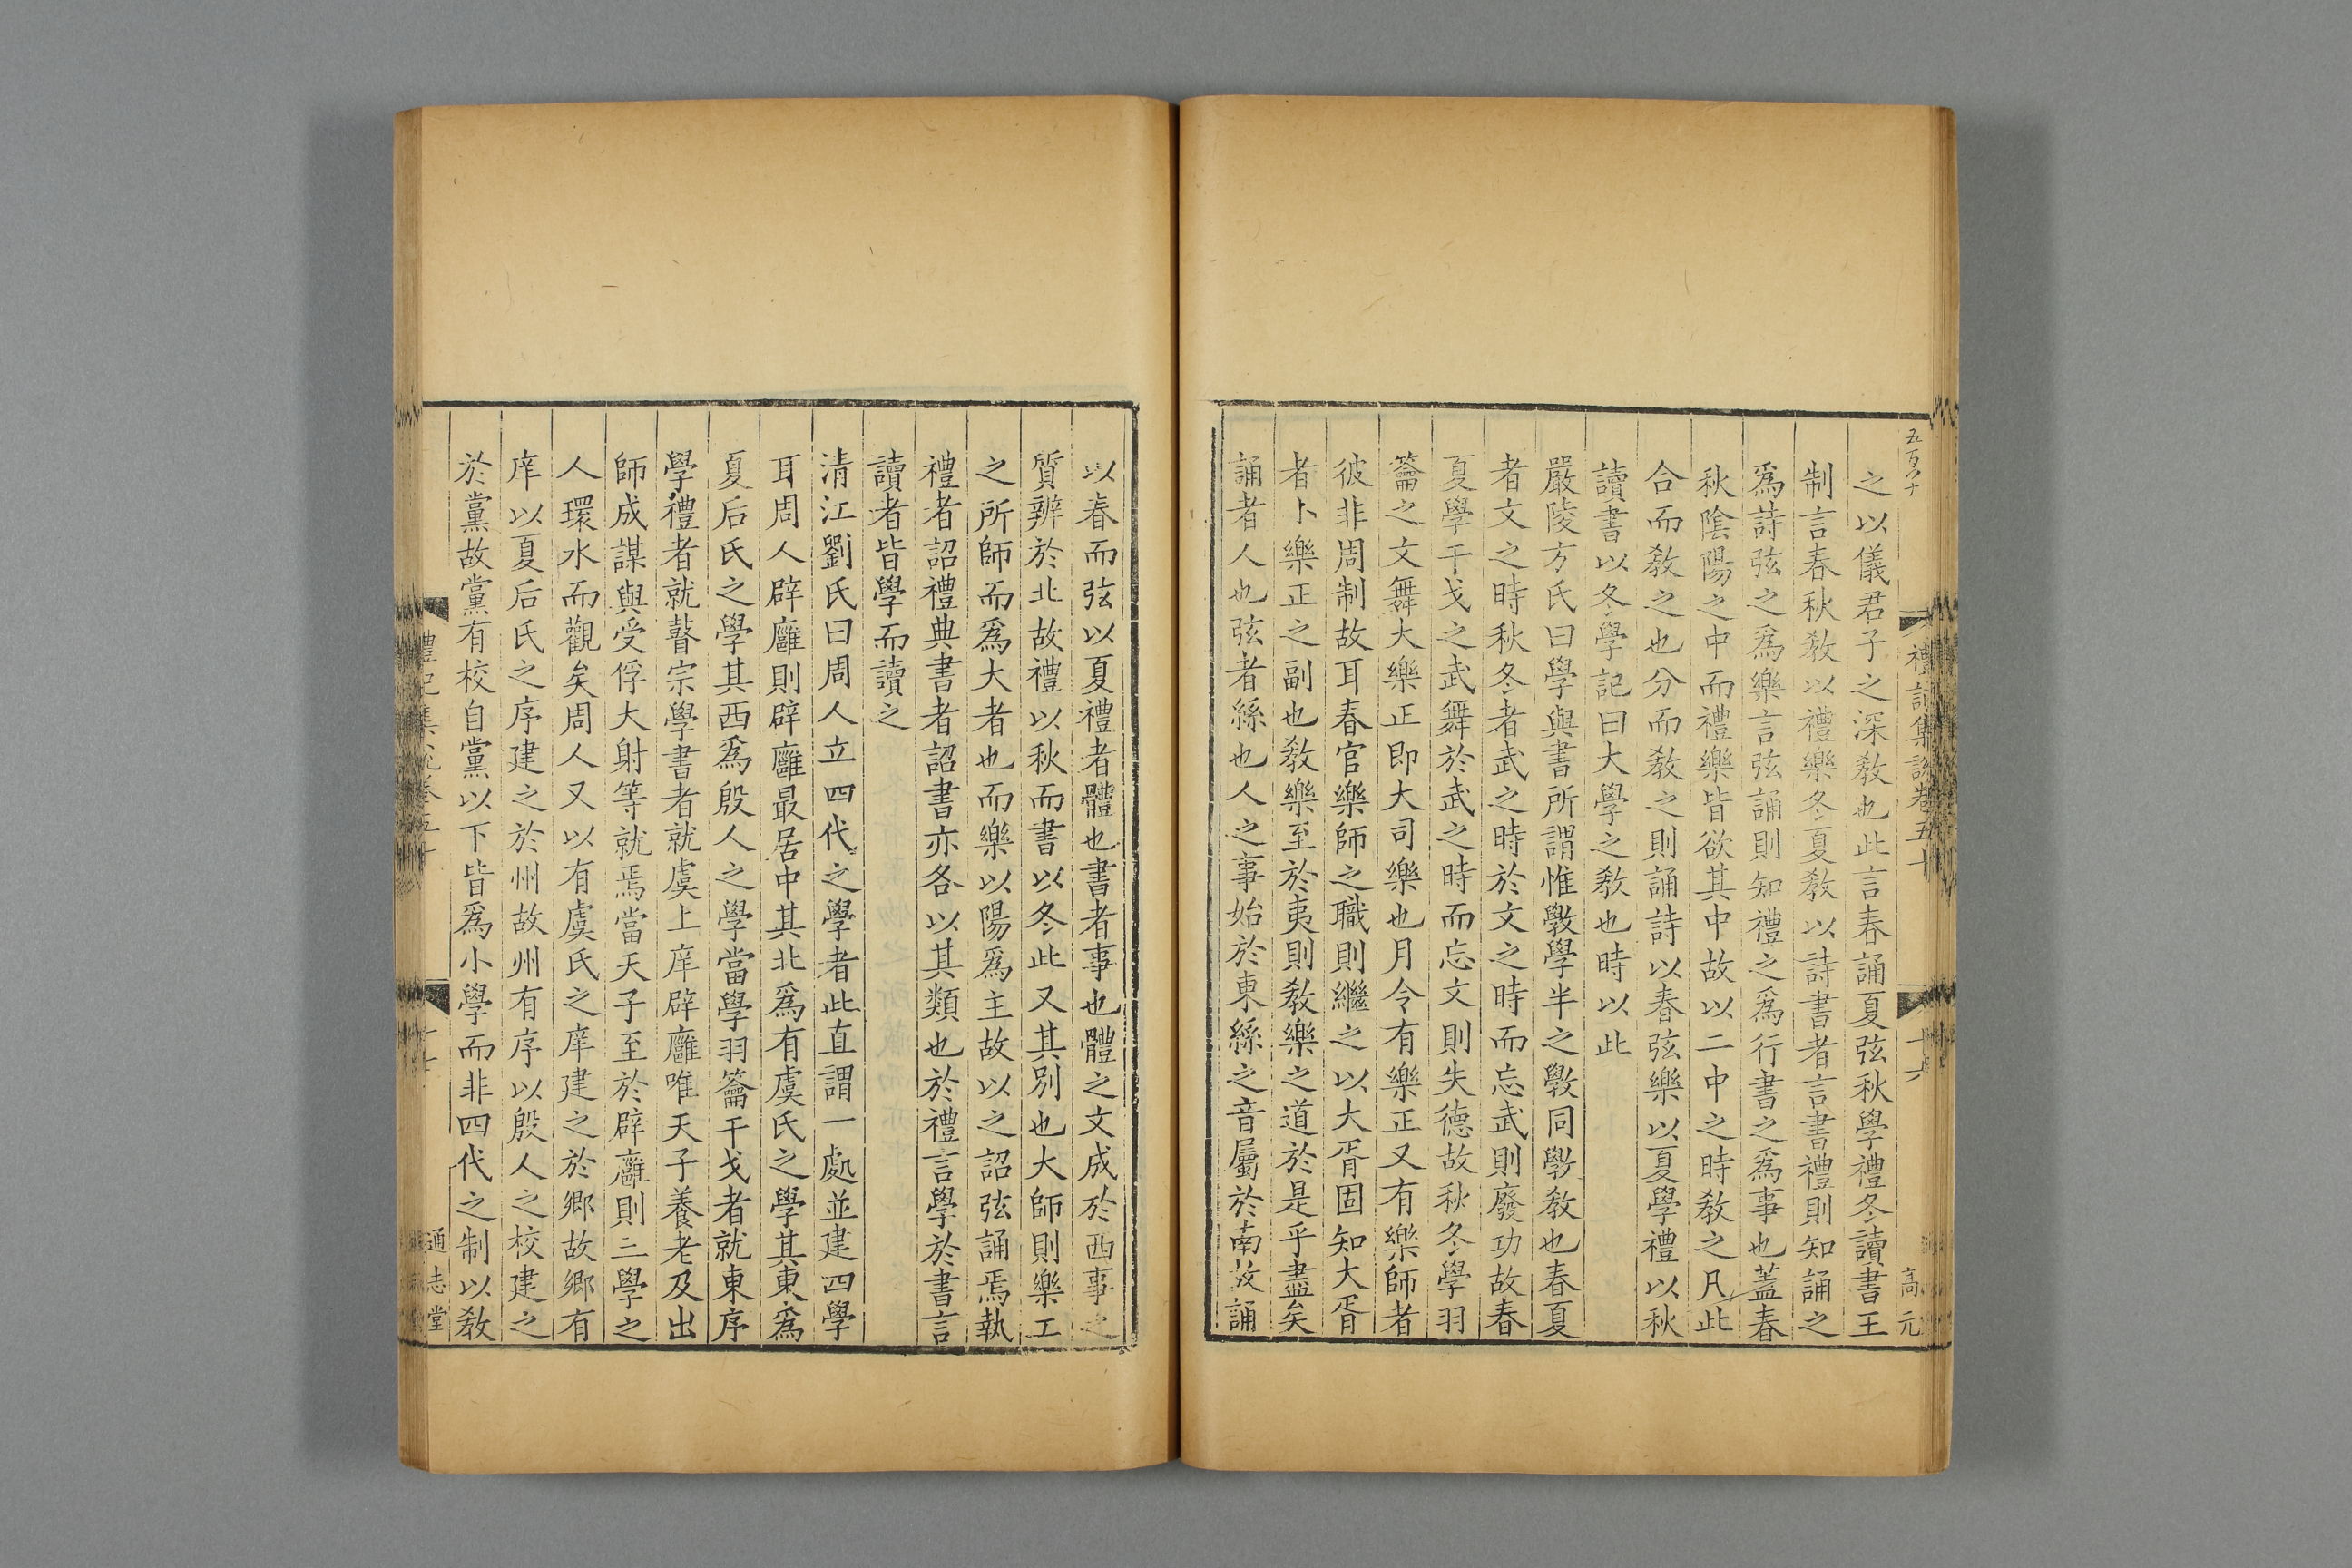 五百卅
禮記集說卷五十
十六
高元
之以儀君子之深教也此言春誦夏弦秋學禮冬讀書王
制言春秋教以禮樂冬夏教以詩書者言書禮則知誦之
爲詩弦之爲樂言弦誦則知禮之爲行書之爲事也蓋春
秋陰陽之中而禮樂皆欲其中故以二中之時教之凡此
合而教之也分而教之則誦詩以春弦樂以夏學禮以秋
讀書以冬學記曰大學之教也時以此
嚴陵方氏曰學與書所謂惟斆學半之斆同斆教也春夏
者文之時秋冬者武之時於文之時而忘武則廢功故春
夏學干戈之武舞於武之時而忘文則失德故秋冬學羽
籥之文舞大樂正即大司樂也月令有樂正又有樂師者
彼非周制故耳春官樂師之職則繼之以大胥固知大胥
者卜樂正之副也教樂至於夷則教樂之道於是乎盡矣
誦者人也弦者絲也人之事始於東絲之音屬於南故誦
以春而弦以夏禮者體也書者事也體之文成於西事之
質辨於北故禮以秋而書以冬此又其別也大師則樂工
之所師而爲大者也而樂以陽爲主故以之詔弦誦焉執
禮者詔禮典書者詔書亦各以其類也於禮言學於書言
讀者皆學而讀之
清江劉氏曰周人立四代之學者此直謂一處並建四學
耳周人辟廱則辟廱最居中其北爲有虞氏之學其東爲
夏后氏之學其西爲殷人之學當學羽籥干戈者就東序
學禮者就瞽宗學書者就虞上庠辟廱唯天子養老及出
師成謀與受俘大射等就焉當天子至於辟廱則三學之
人環水而觀矣周人又以有虞氏之庠建之於鄉故鄉有
庠以夏后氏之序建之於州故州有序以殷人之校建之
於黨故黨有校自黨以下皆爲小學而非四代之制以教
禮記集說卷五十
十七
通志堂